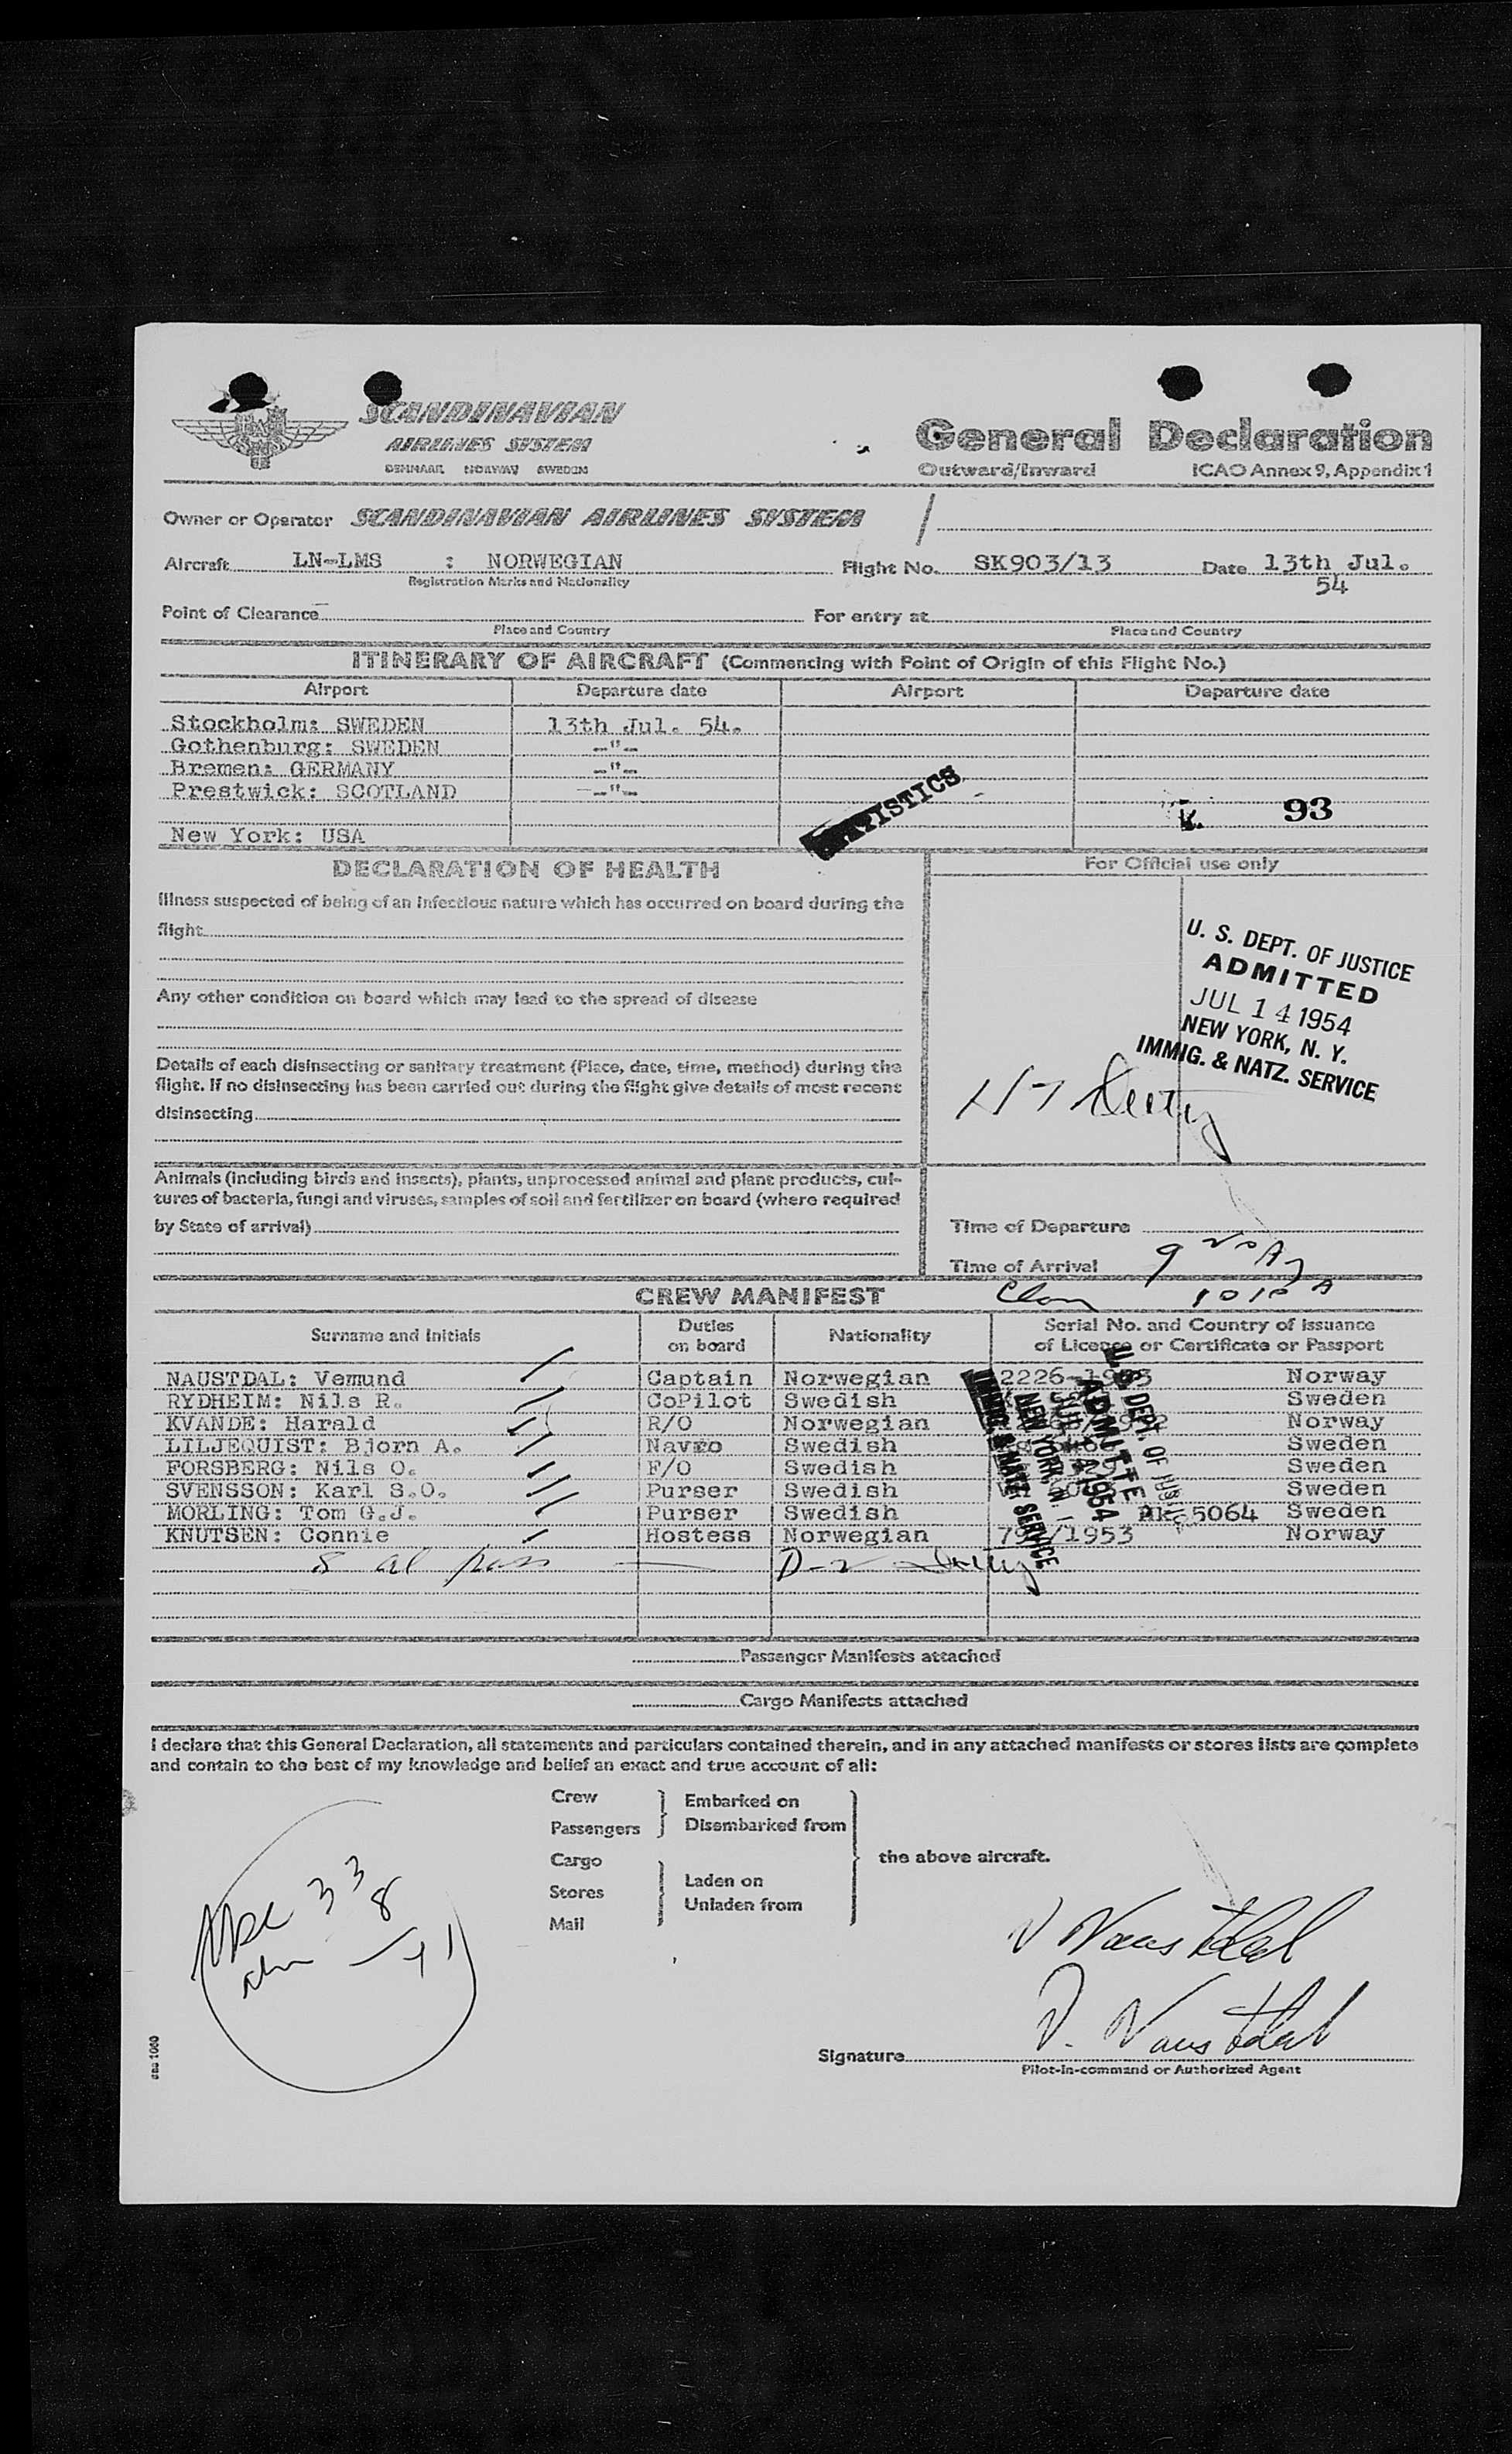 SCANDINAVIAN
AIRLINES SYSTEM
DENMARK NORWAY SWEDEN
General Declaration
Outward/Inward ICAO Annex 9, Appendix 1
Owner or Operator SCANDINAVIAN AIRLINES SYSTEM /
Aircraft LN-LMS : NORWEGIAN Flight No. SK903/13 Date 13th Jul. 54
Registration Marks and Nationality
Point of Clearance For entry at
Place and Country Place and Country
ITINERARY OF AIRCRAFT (Commencing with Point of Origin of this Flight No.)
Airport Departure date Airport Departure date
Stockholm: SWEDEN 13th Jul. 54.
Gothenburg: SWEDEN -"-
Bremen: GERMANY -"-
Prestwick: SCOTLAND -"-
STATISTICS
93
New York: USA
DECLARATION OF HEALTH
For Official use only
Illness suspected of being of an infectious nature which has occurred on board during the
flight
Any other condition on board which may lead to the spread of disease
Details of each disinsecting or sanitary treatment (Place, date, time, method) during the
flight. If no disinsecting has been carried out during the flight give details of most recent
disinsecting
U. S. DEPT. OF JUSTICE
ADMITTED
JUL 14 1954
NEW YORK, N. Y.
IMMIG. & NATZ. SERVICE
Animals (including birds and insects), plants, unprocessed animal and plant products, cul-
tures of bacteria, fungi and viruses, samples of soil and fertilizer on board (where required
by State of arrival)
Time of Departure
Time of Arrival 9 20 A
1010 A
CREW MANIFEST
Surname and Initials Duties on board Nationality Serial No. and Country of Issuance of Licence or Certificate or Passport
NAUSTDAL: Vemund Captain Norwegian 2226-1953 Norway
RYDHEIM: Nils R. CoPilot Swedish Sweden
KVANDE: Harald R/O Norwegian Norway
LILJEQUIST: Bjorn A. Navro Swedish Sweden
FORSBERG: Nils O. F/O Swedish Sweden
SVENSSON: Karl S.O. Purser Swedish Sweden
MORLING: Tom G.J. Purser Swedish 5064 Sweden
KNUTSEN: Connie Hostess Norwegian /1953 Norway
U. S. DEPT. OF JUSTICE
ADMITTE
1954
NEW YORK, N.
IMMIG. & NATZ. SERVICE
8 al pass
Passenger Manifests attached
Cargo Manifests attached
I declare that this General Declaration, all statements and particulars contained therein, and in any attached manifests or stores lists are complete
and contain to the best of my knowledge and belief an exact and true account of all:
Crew
Passengers
Embarked on
Disembarked from
Cargo
Stores
Mail
Laden on
Unladen from
the above aircraft.
33
8
41
V Naustdal
V. Naustdal
Signature
Pilot-in-command or Authorized Agent
sas 1060